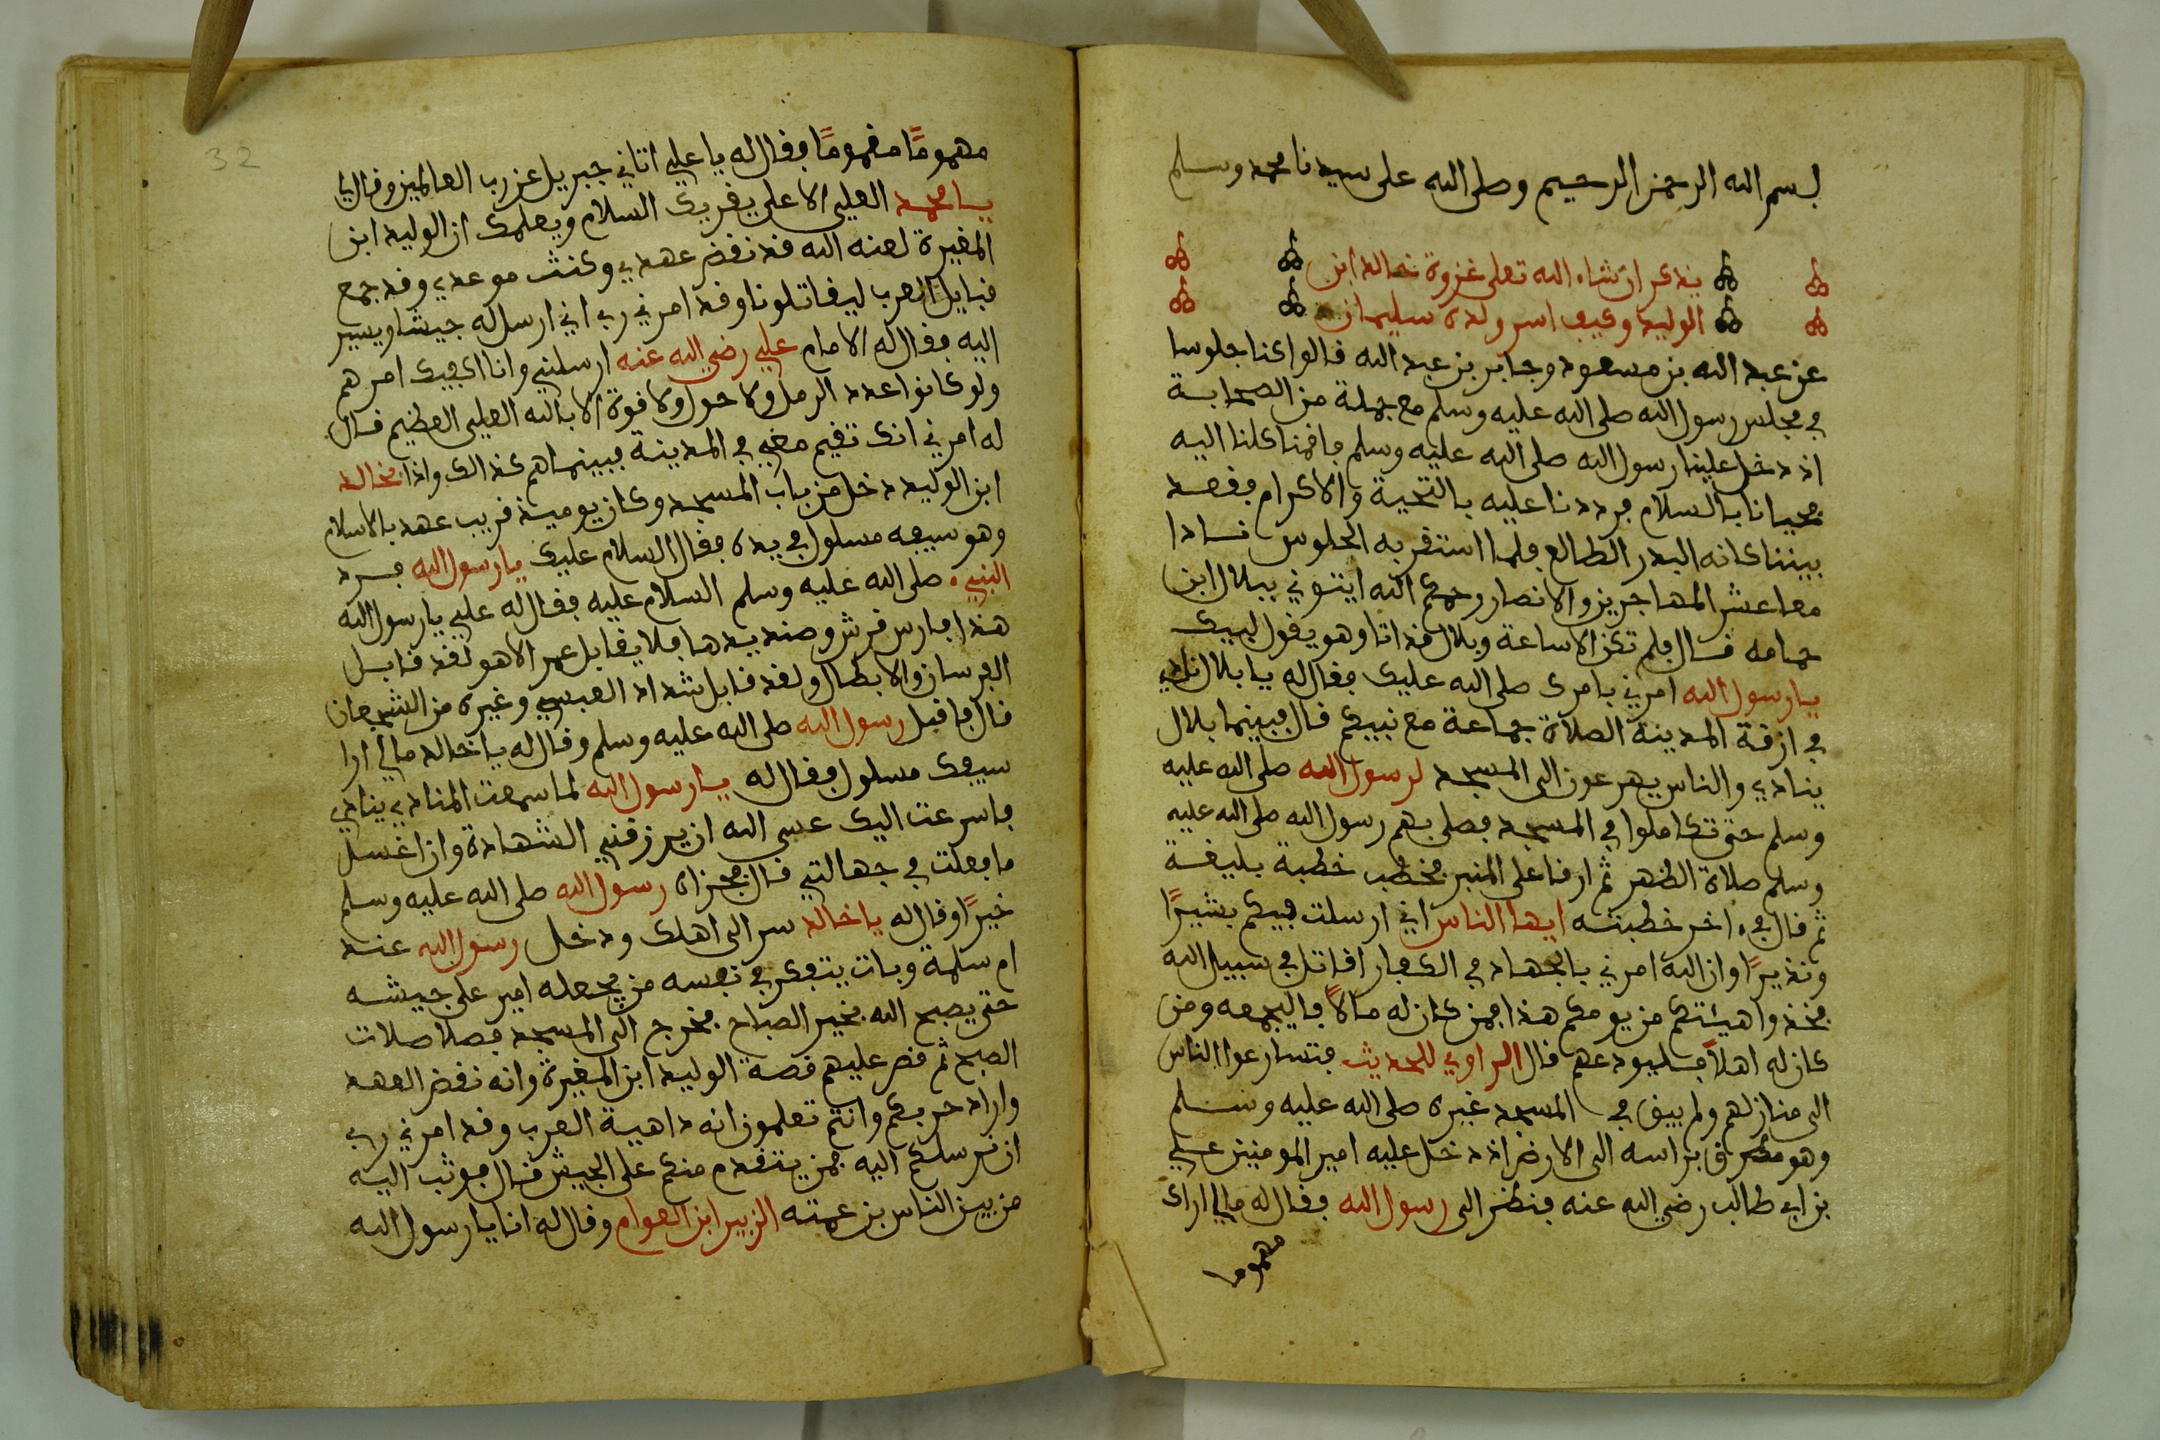 بسم الله الرحمن الرحيم وصلى الله على سيدنا محمد وسلم
يذكر ان شاء الله تعلى غزوة خالد ابن
الوليد وكيف اسر ولده سليمان
عن عبد الله بن مسعود وجابر بن عبد الله قالوا كنا جلوسا
في مجلس رسول الله صلى الله عليه وسلم مع جملة من الصحابة
اذ دخل علينا رسول الله صلى الله عليه وسلم فاقمنا كلنا اليه
فحيانا بالسلام فرددنا عليه بالتحية والاكرام فقعد
بيننا كانه البدر الطالع فلما استقر به الجلوس نادا
معاعشر المهاجرين والانصار رحمكم الله ايتوني ببلال ابن
حمامه قال فلم تكن الا ساعة وبلال قد اتا وهو يقول لبيك
يا رسول الله امرني بامرك صلى الله عليك فقال له يا بلال نادي
في ازقة المدينة الصلاة جماعة مع نبيكم قال فبينما بلال
ينادي والناس يهرعون الى المسجد لرسول الله صلى الله عليه
وسلم حتى تكاملوا في المسجد فصلى بهم رسول الله صلى الله عليه
وسلم صلاة الظهر ثم ارقا على المنبر فخطب خطبة بليغة
ثم قال في اخر خطبته ايها الناس اني ارسلت فيكم بشيرًا
ونذيرًا وان الله امرني بالجهاد في الكفار اقاتل في سبيل الله
فخذوا اهيبتكم من يومكم هذا فمن كان له مالًا فاليجمعه ومن
كان له اهلًا فليودعهم قال الراوي للحديث فتسارعوا الناس
الى منازلهم ولم يبق في المسجد غيره صلى الله عليه وسلم
وهو مطرق براسه الى الارض اذ دخل عليه امير المومنين علي
بن ابي طالب رضي الله عنه فنظر الى رسول الله فقال له مالي اراك
مهموما
32
مهمومًا مغمومًا فقال له يا علي اتاني جبريل عن رب العالمين وقال لي
يا محمد العلي الاعلى يقريك السلام ويعلمك ان الوليد ابن
المغيرة لعنه الله قد نقض عهدي وكنث موعدي وقد جمع
قبايل العرب ليقاتلونا وقد امرني ربي اني ارسل له جيشا ويسير
اليه فقال له الامام علي رضي الله عنه ارسلني وانا اكفيك امرهم
ولو كانوا عدد الرمل ولا حول ولا قوة الا بالله العلي العظيم قال
له امرني انك تقيم معي في المدينة فبينما هم كذالك واذا بخالد
ابن الوليد دخل من باب المسجد وكان يوميذ قريب عهد بالاسلام
وهو سيفه مسلول في يده فقال السلام عليك يا رسول الله فرد
النبي صلى الله عليه وسلم السلام عليه فقال له علي يا رسول الله
هذا فارس قرش وصنديدها فلا يقابل عمر الاهو لقد قابل
الفرسان والابطال ولقد قابل شداد العبسي وغيره من الشجعان
قال فاقبل رسول الله صلى الله عليه وسلم وقال له يا خالد مالي ارا
سيفك مسلول فقال له يا رسول الله لما سمعت المنادي ينادي
فاسرعت اليك عسى الله ان يرزقني الشهادة وان اغسل
ما فعلت في جهالتي قال فجزاه رسول الله صلى الله عليه وسلم
خيرًا وقال له يا خالد سر الى اهلك ودخل رسول الله عند
ام سلمة وبات يتفكر في نفسه من يجعله امير على جيشه
حتى يصبح الله بخير الصباح فخرج الى المسجد فصلا صلات
الصبح ثم قص عليهم قصة الوليد ابن المغيرة وانه نقض العهد
واراد حربكم وانتم تعلمون انه داهية العرب وقد امرني ربي
ان نرسلكم اليه فمن يتقدم منكم على الجيش قال فوثب اليه
من بين الناس بن عمته الزبير ابن العوام وقال له انا يا رسول الله